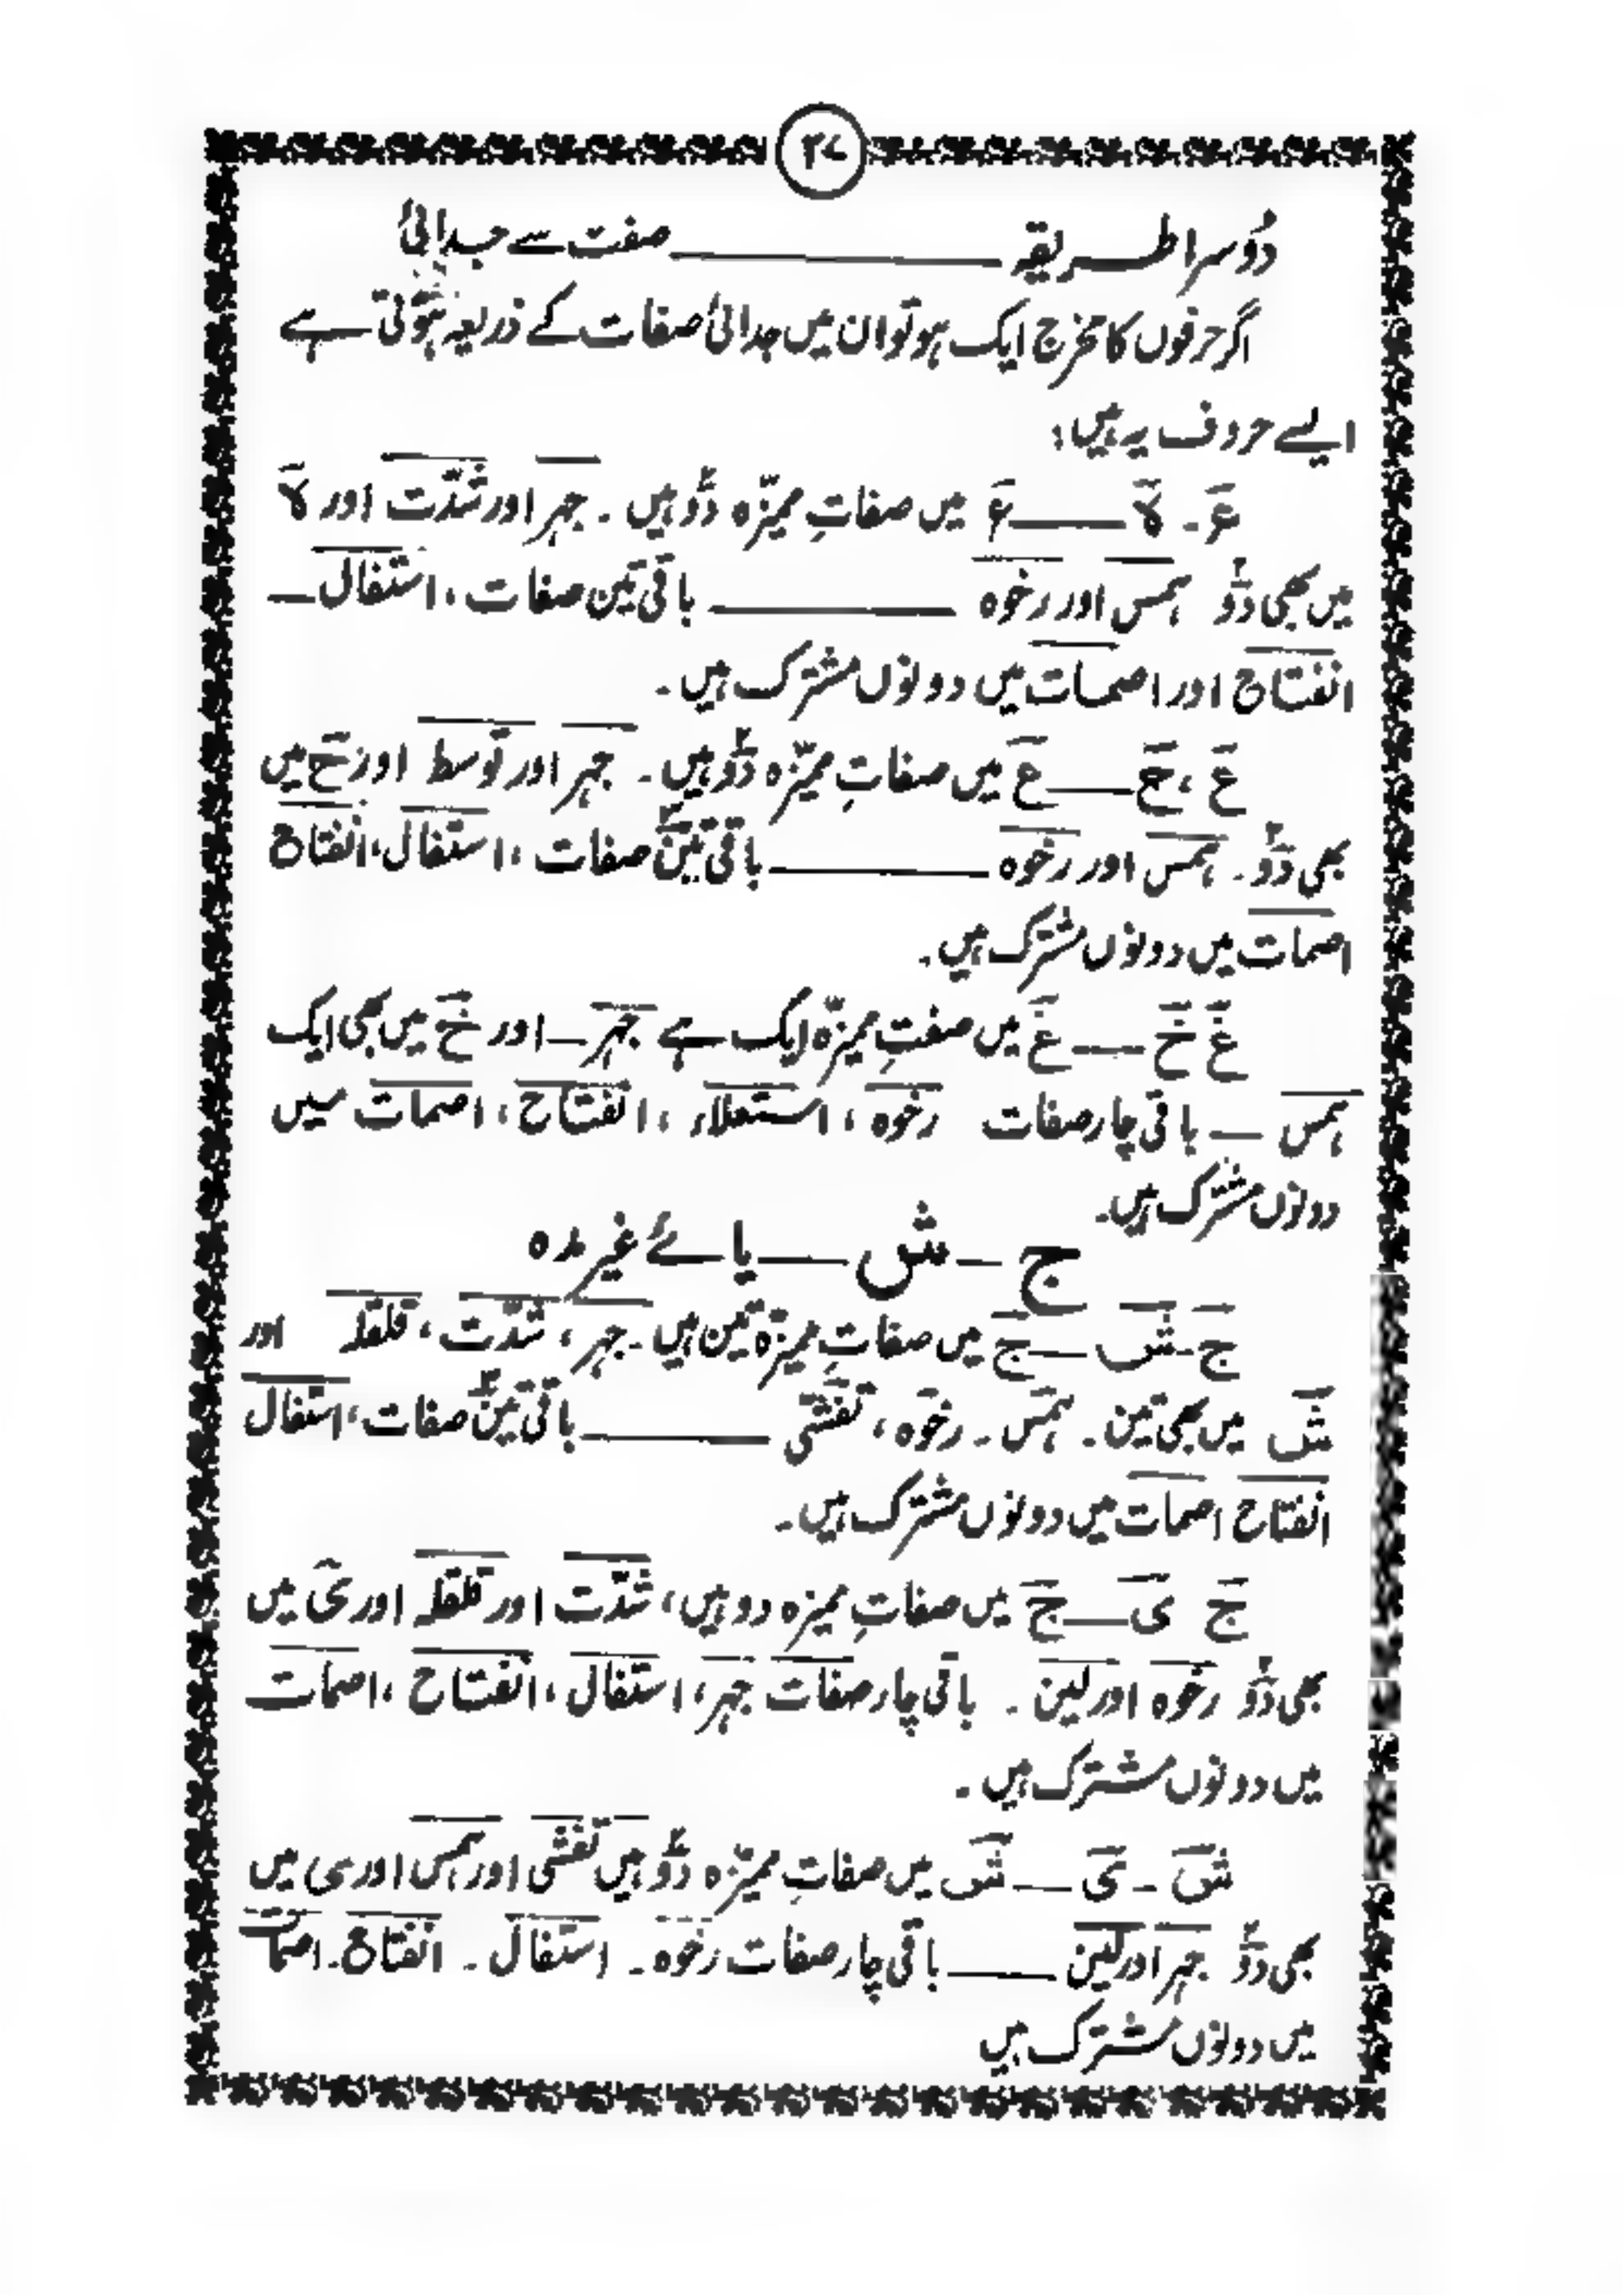 ۳۷
دُوسرا طریقہ ــــــــ صفت سے جدائی
اگر حرفوں کا مخرج ایک ہو تو ان میں جدائی صفات کے ذریعہ ہوتی ہے
ایسے حروف یہ ہیں:
ءَ ۔ ہَ ــــــــ ءَ میں صفاتِ ممیزّہ دوؔ ہیں ۔ جہر اور شدّت اور ہَ
میں بھی دوؔ ہمس اور رخوہ ــــــــ باقی تین صفات ، استفال ــ
انفتاح اور اصمات میں دونوں مشترک ہیں ۔
عَ ، حَ ــــــــ عَ میں صفاتِ ممیزّہ دوؔ ہیں ۔ جہر اور توسط اور حَ میں
بھی دوؔ ۔ ہمس اور رخوہ ــــــــ باقی تینؔ صفات ، استفال ، انفتاح
اصمات میں دونوں مشترک ہیں ۔
غَ خَ ــــ غَ میں صفتِ ممیزّہ ایک ہے جہر ــ اور خَ میں بھی ایک
ہمس ــ باقی چار صفات رخوہ ، استعلاء ، انفتاح ، اصمات میں
دونوں مشترک ہیں ۔
ج ــ ش ــــ یائے غیر مدہ
جَ ۔ شَ ــــ جَ میں صفاتِ ممیزّہ تین ہیں ۔ جہر ، شدّت ، قلقلہ اور
شَ میں بھی تین ۔ ہمس ۔ رخوہ ، تفشّی ــــــــ باقی تینؔ صفات ، استفال
انفتاح اصمات میں دونوں مشترک ہیں ۔
جَ یَ ــــ جَ میں صفاتِ ممیزہ دو ہیں ، شدّت اور قلقلہ اور یَ میں
بھی دوؔ رخوہ اور لین ۔ باقی چار صفات جہر ، استفال ، انفتاح ، اصمات
میں دونوں مشترک ہیں ۔
شَ ۔ یَ ــــ شَ میں صفاتِ ممیزّہ دوؔ ہیں تفشی اور ہمس اور ی میں
بھی دوؔ جہر اور لین ــــــــ باقی چار صفات رخوہ ۔ استفال ۔ انفتاح ۔ اصمات
میں دونوں مشترک ہیں